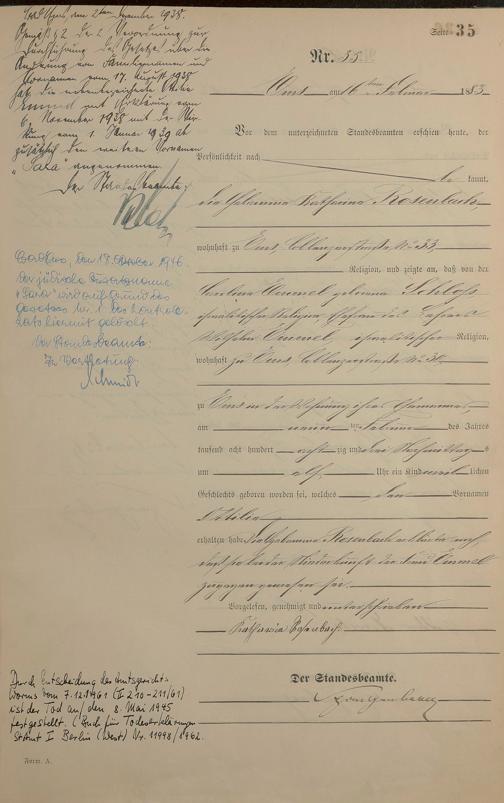 Bad Ems, am 2ten Dezember 1938.
Gemäß § 2 der 2. Verordnung zur
Durchführung des Gesetzes über die
Änderung von Familiennamen und
Vornamen vom 17. August 1938
hat die untenbezeichnete Ottilie
Emmel mit Erklärung vom
6. November 1938 mit der Wir-
kung vom 1. Januar 1939 ab
zusätzlich den weiteren Vornamen
„Sara“ angenommen.
Der Standesbeamte
Bad Ems, den 17. Oktober 1946.
Der jüdische Zusatzname
"Sara" wird auf Grund des
Gesetzes Nr. 1 des Kontroll-
rats hiermit gelöscht.
Der Standesbeamte:
In Vertretung:
Schmidt
Durch Entscheidung des Amtsgerichts
Worms vom 7.12.1961 (II 210-211/61)
ist der Tod auf den 8. Mai 1945
festgestellt. (Buch für Todeserklärungen
StAmt I Berlin (West) Nr. 11998/1962.
Form. A.
Seite 35
Nr. 55.
Ems am 16ten Februar 1883
Vor dem unterzeichneten Standesbeamten erschien heute, der
Persönlichkeit nach
be kannt,
die Hebamme Katharina Rosenbach
wohnhaft zu Ems, Coblenzerstraße No 33,
Religion, und zeigte an, daß von der
Carolina Emmel geborene Schloß,
israelitischer Religion, Ehefrau des Lehrers
Wilhelm Emmel, israelitischer Religion,
wohnhaft zu Ems, Coblenzerstraße No
zu Ems in der Wohnung ihres Ehemannes
am neunten Februar des Jahres
tausend acht hundert acht zig und drei Nachmittags
um elf Uhr ein Kind weiblichen
Geschlechts geboren worden sei, welches den Vornamen
Ottilia
erhalten habe. Die Hebamme Rosenbach erklärte noch,
daß sie bei der Niederkunft der Frau Emmel
zugegen gewesen sei.
Vorgelesen, genehmigt und unterschrieben
Katharina Rosenbach
Der Standesbeamte.